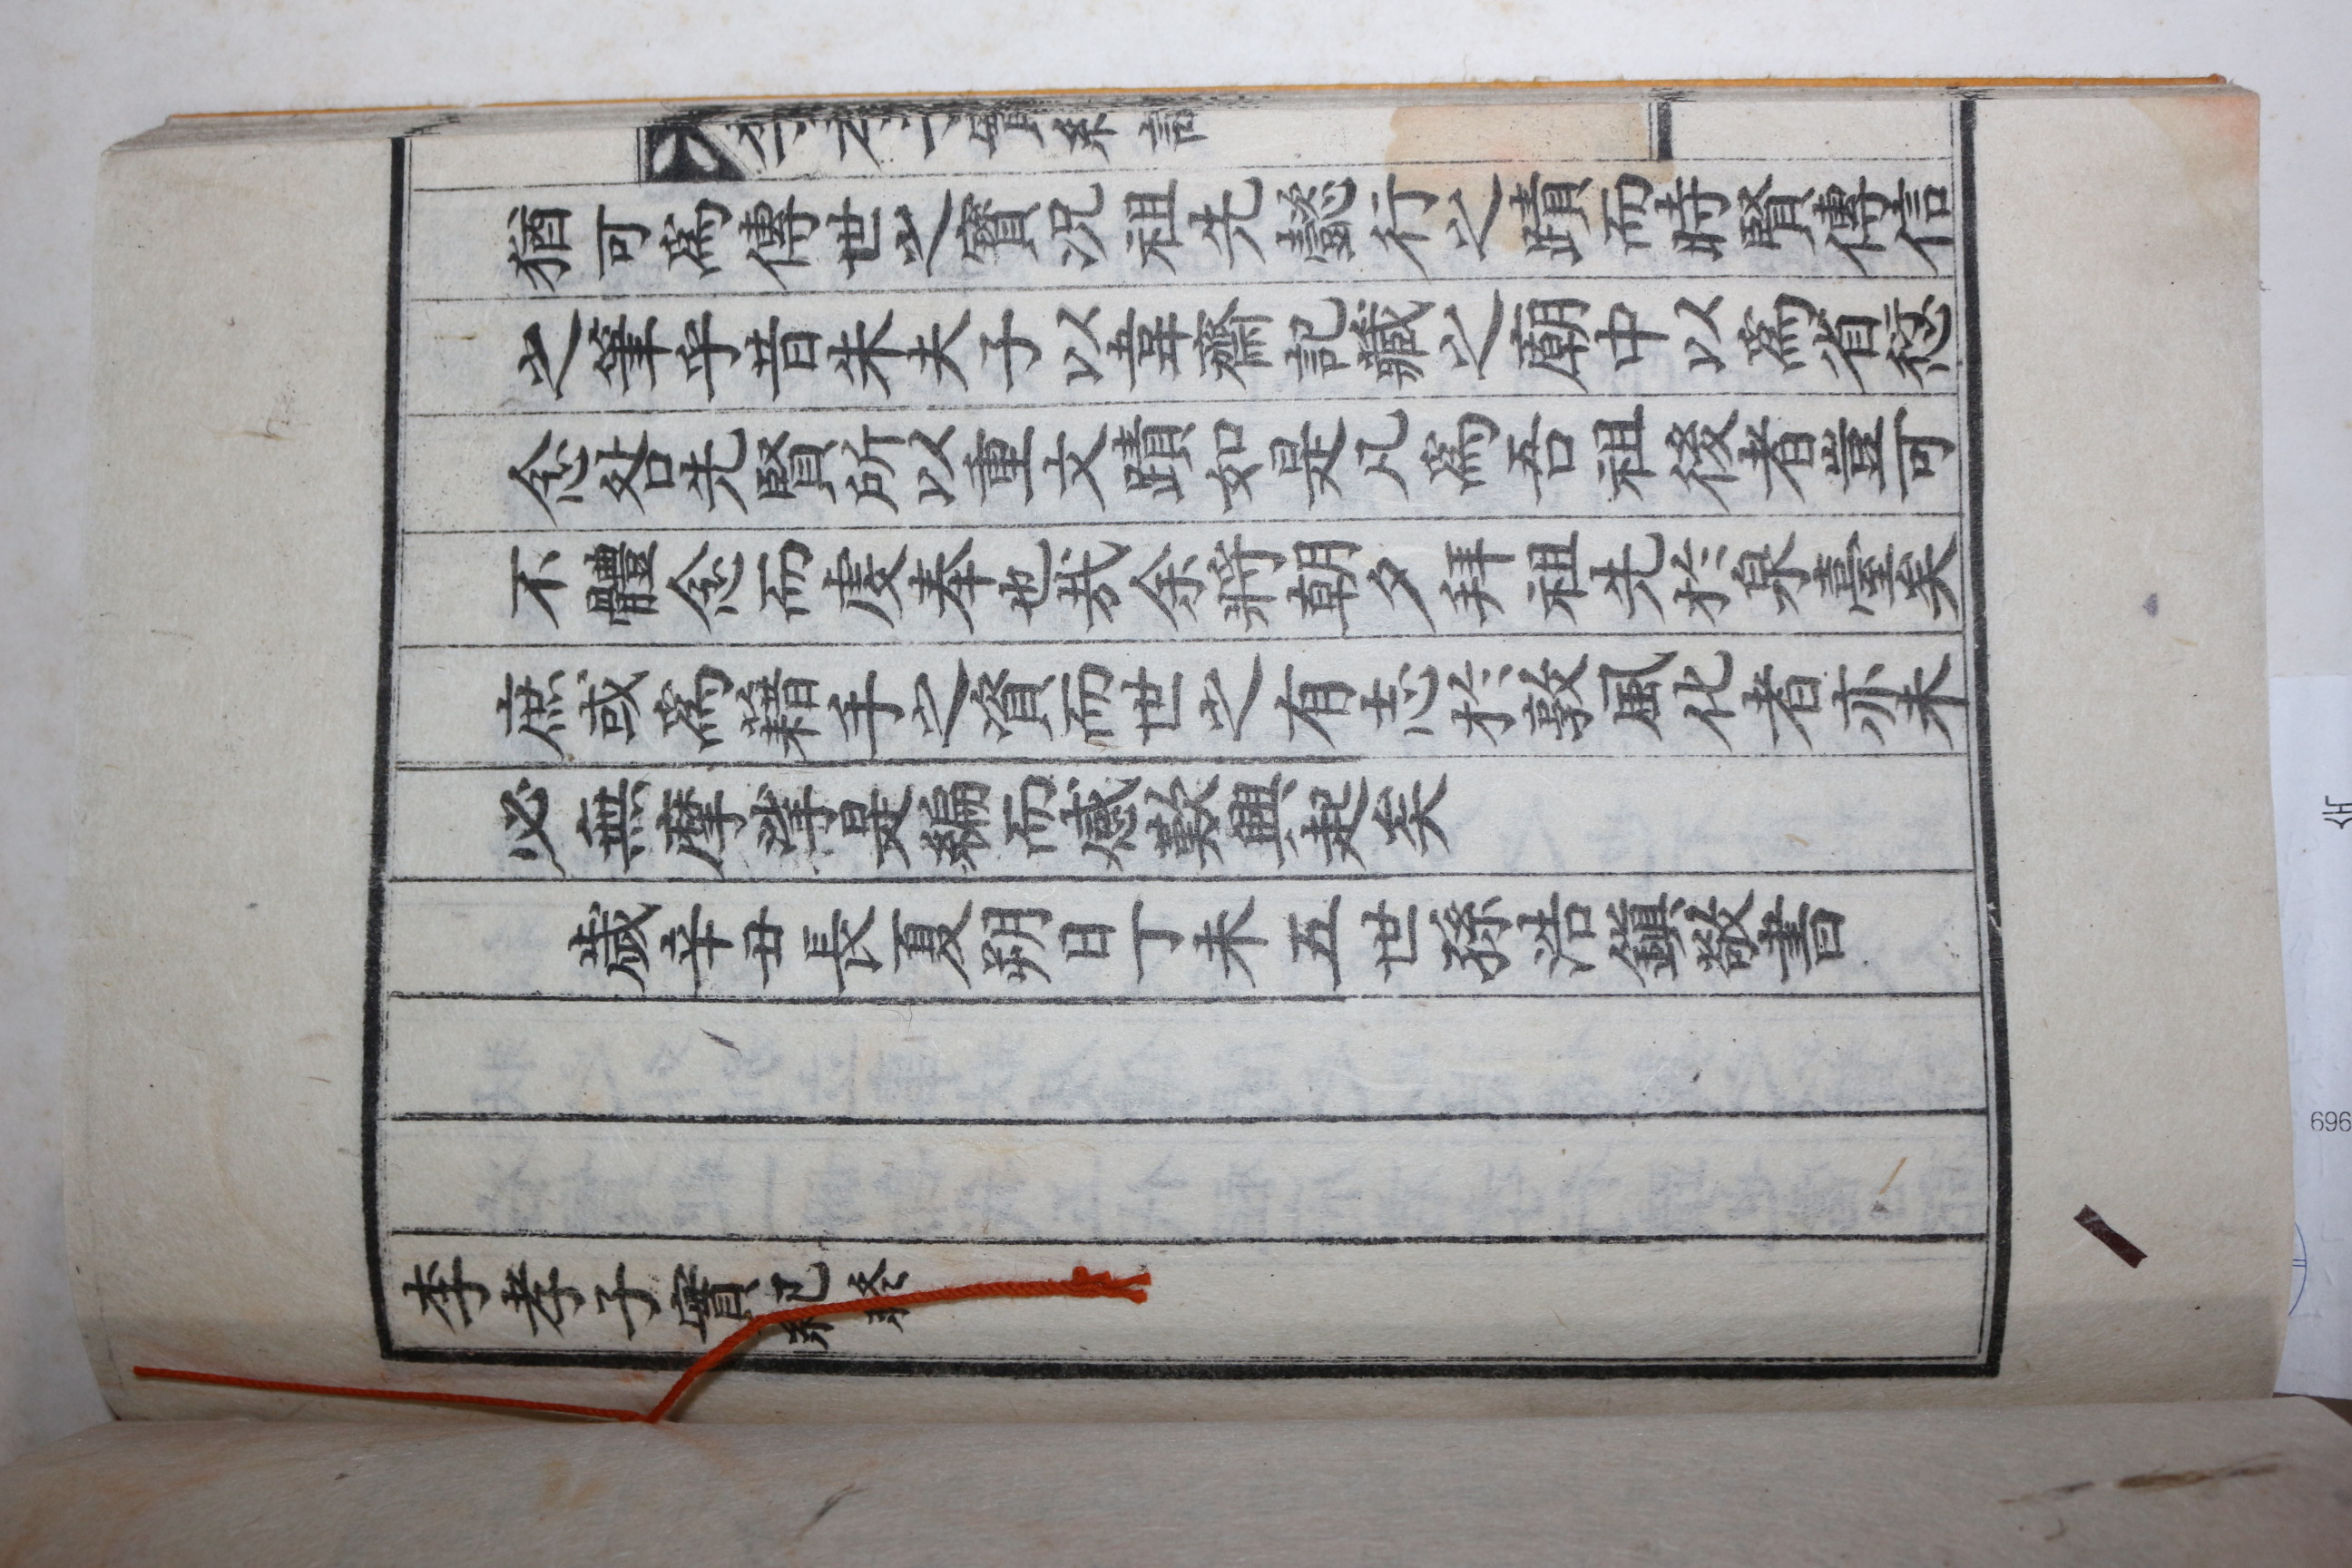 猶可爲傳世之寶況祖先懿行之蹟而時賢傳信
之筆乎昔朱夫子以韋齋記藏之廟中以爲省愆
念咎先賢所以重文蹟如是凡爲吾祖後者豈可
不體念而虔奉也哉余將朝夕拜祖先於泉臺矣
庶或爲藉手之資而世之有志於敦風化者亦未
必無摩挲是編而感歎興起矣
歲辛丑長夏朔日丁未五世孫浩鎭敬書
李孝子實紀終
696